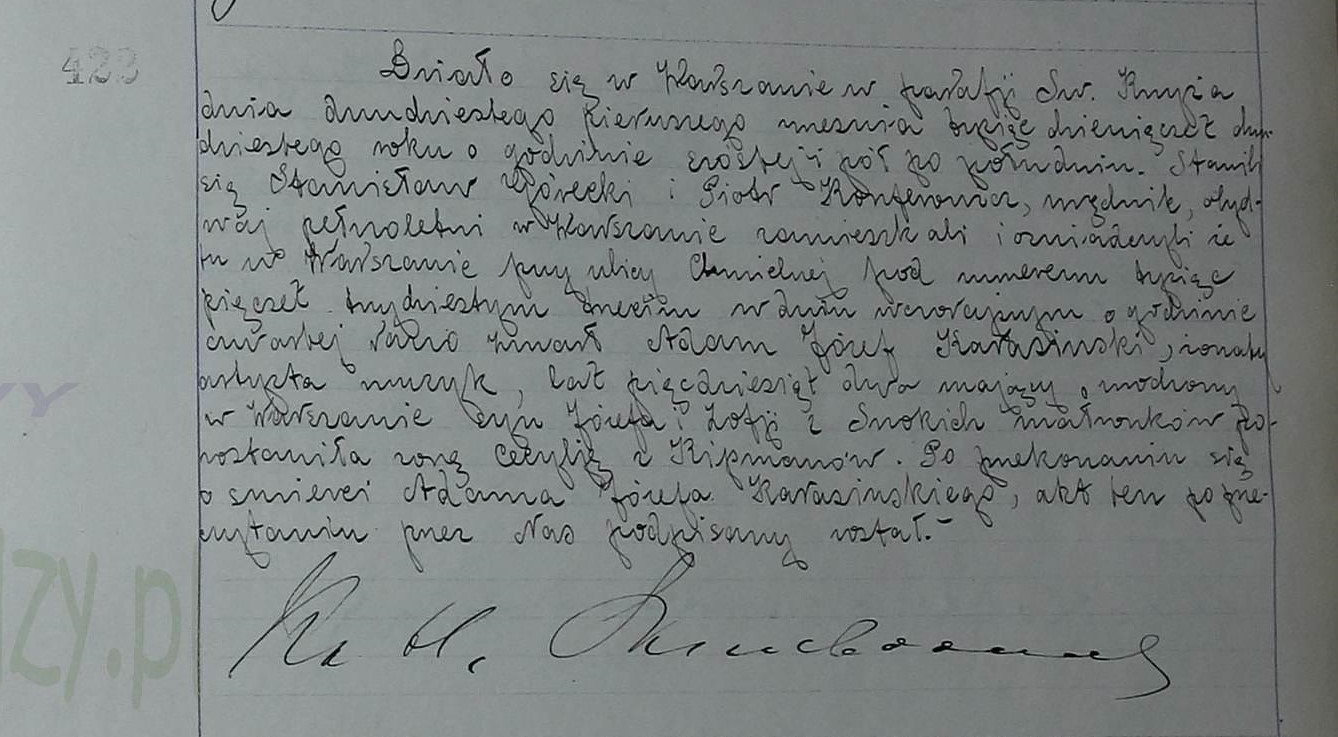 423
Działo się w Warszawie w parafji Św. Krzyża
dnia dwudziestego pierwszego września tysiąc dziewięćset dwu-
dziestego roku o godzinie szóstej i pół po południu. Stawili
się Stanisław Górecki i Piotr urzędnik, obyd-
waj pełnoletni w Warszawie zamieszkali i oświadczyli że
tu w Warszawie przy ulicy Chmielnej pod numerem tysiąc
pięćset trzydziestym trzecim w dniu wczorajszym o godzinie
czwartej rano zmarł Adam Józef Karasiński, żonaty
artysta muzyk, lat pięćdziesiąt dwa mający, urodzony
w Warszawie syn Józefa i Zofji z małżonków po-
zostawiła żonę Cecylję z Kipmanów. Po przekonaniu się
o śmierci Adama Józefa Karasińskiego, akt ten po prze-
czytaniu przez Nas podpisany został.-
zy.p